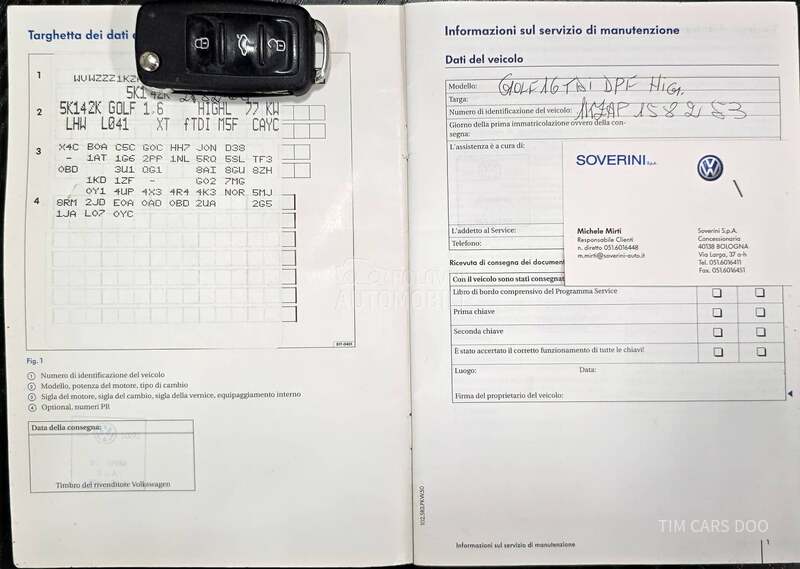 Targhetta dei dati
1
WVWZZZ1KZ
5K142K
2
5K142K GOLF 1,6 HIGHL 77 KW
LHW L041 XT fTDI M5F CAYC
3
X4C BOA C5C GOC HH7 JON D38
- 1AT 1G6 2PP 1NL 5RQ 5SL TF3
OBD 3U1 QG1 8AI 8GU 8ZH
1KD 1ZF - GO2 7MG
OY1 4UP 4X3 4R4 4K3 NOR 5MJ
4
8RM 2JD EOA OAD OBD 2UA 2G5
1JA LO7 OYC
Fig. 1
1 Numero di identificazione del veicolo
2 Modello, potenza del motore, tipo di cambio
3 Sigla del motore, sigla del cambio, sigla della vernice, equipaggiamento interno
4 Optional, numeri PR
Data della consegna:
Timbro del rivenditore Volkswagen
Informazioni sul servizio di manutenzione
Dati del veicolo
Modello: GOLF 16 TDI DPF HIG.
Targa:
Numero di identificazione del veicolo:
Giorno della prima immatricolazione ovvero della con-
segna:
L'assistenza è a cura di:
L'addetto al Service:
Telefono:
SOVERINI S.p.A.
Michele Mirti
Responsabile Clienti
n. diretto 051.6016448
m.mirti@soverini-auto.it
Soverini S.p.A.
Concessionaria
40138 BOLOGNA
Via Larga, 37 a-h
Tel. 051.6016411
Fax. 051.6016451
Ricevuta di consegna dei document
Con il veicolo sono stati consegnat
Libro di bordo comprensivo del Programma Service
Prima chiave
Seconda chiave
È stato accertato il corretto funzionamento di tutte le chiavi!
Luogo: Data:
Firma del proprietario del veicolo:
Informazioni sul servizio di manutenzione
1
TIM CARS DOO